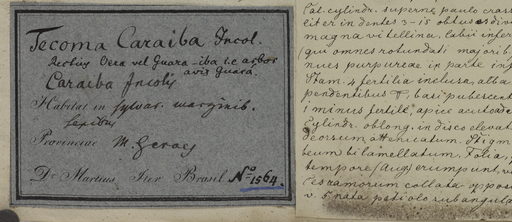 Tecoma Caraiba Incol.
rectius Ueca vel Guara-iba i.e arbor
avis guara.
Caraiba Incolis
Habitat in sylvar. marginib.
Provinciae M. Geraes
Dr Martius Iter Brasil No 1564.
Cal. cylindr. superne paulo crass
cit er in dentes 3-15 obtusos div
magna vitellina, labii infer
(qui omnes rotundati) majorib
nves purpureae in parte inf
Stam. 4 fertilia inclusa, alba
pendentibus T, basi pubescent
1 minus fertile, apice
Cylindr. oblong. in disco elevat
deorsum attenuatum. Stigm
teum bilamellatum. Folia,
tempore (Aug.) erumpunt, v
ramorum collata oppos
v. 5 nata petiolo subangula